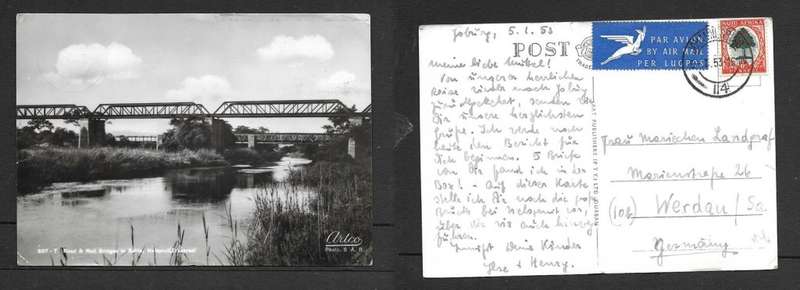 Road & Rail Bridges
Artco
Photo. S.A.R.
Joburg, 5.1.53
POST
PAR AVION
BY AIR MAIL
PER LUGPOS
114
meine liebe
Von unserer herrlichen
Reise wieder nach Joburg
zurückgekehrt, senden wir
Dir unsere herzlichsten
Grüße. Ich werde noch
heute den Bericht für
Dich beginnen. 5 Briefe
von Dir fand ich in der
Box! - Auf dieser Karte
stelle ich Dir noch die große
Brücke bei
über die wir auch
führen.
Deine Kinder
Ilse & Henry.
Frau Marischen Landgraf
Marienstraße 26
(10b) Werdau/Sa.
Germany